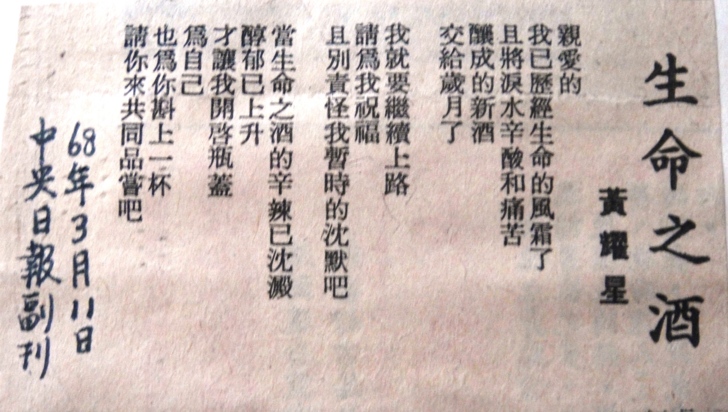 生命之酒
黃耀星
親愛的
我已歷經生命的風霜了
且將淚水辛酸和痛苦
釀成的新酒
交給歲月了
我就要繼續上路
請爲我祝福
且別責怪我暫時的沈默吧
當生命之酒的辛辣已沈澱
醇郁已上升
才讓我開啓瓶蓋
爲自己
也爲你斟上一杯
請你來共同品嘗吧
68年3月11日
中央日報副刊